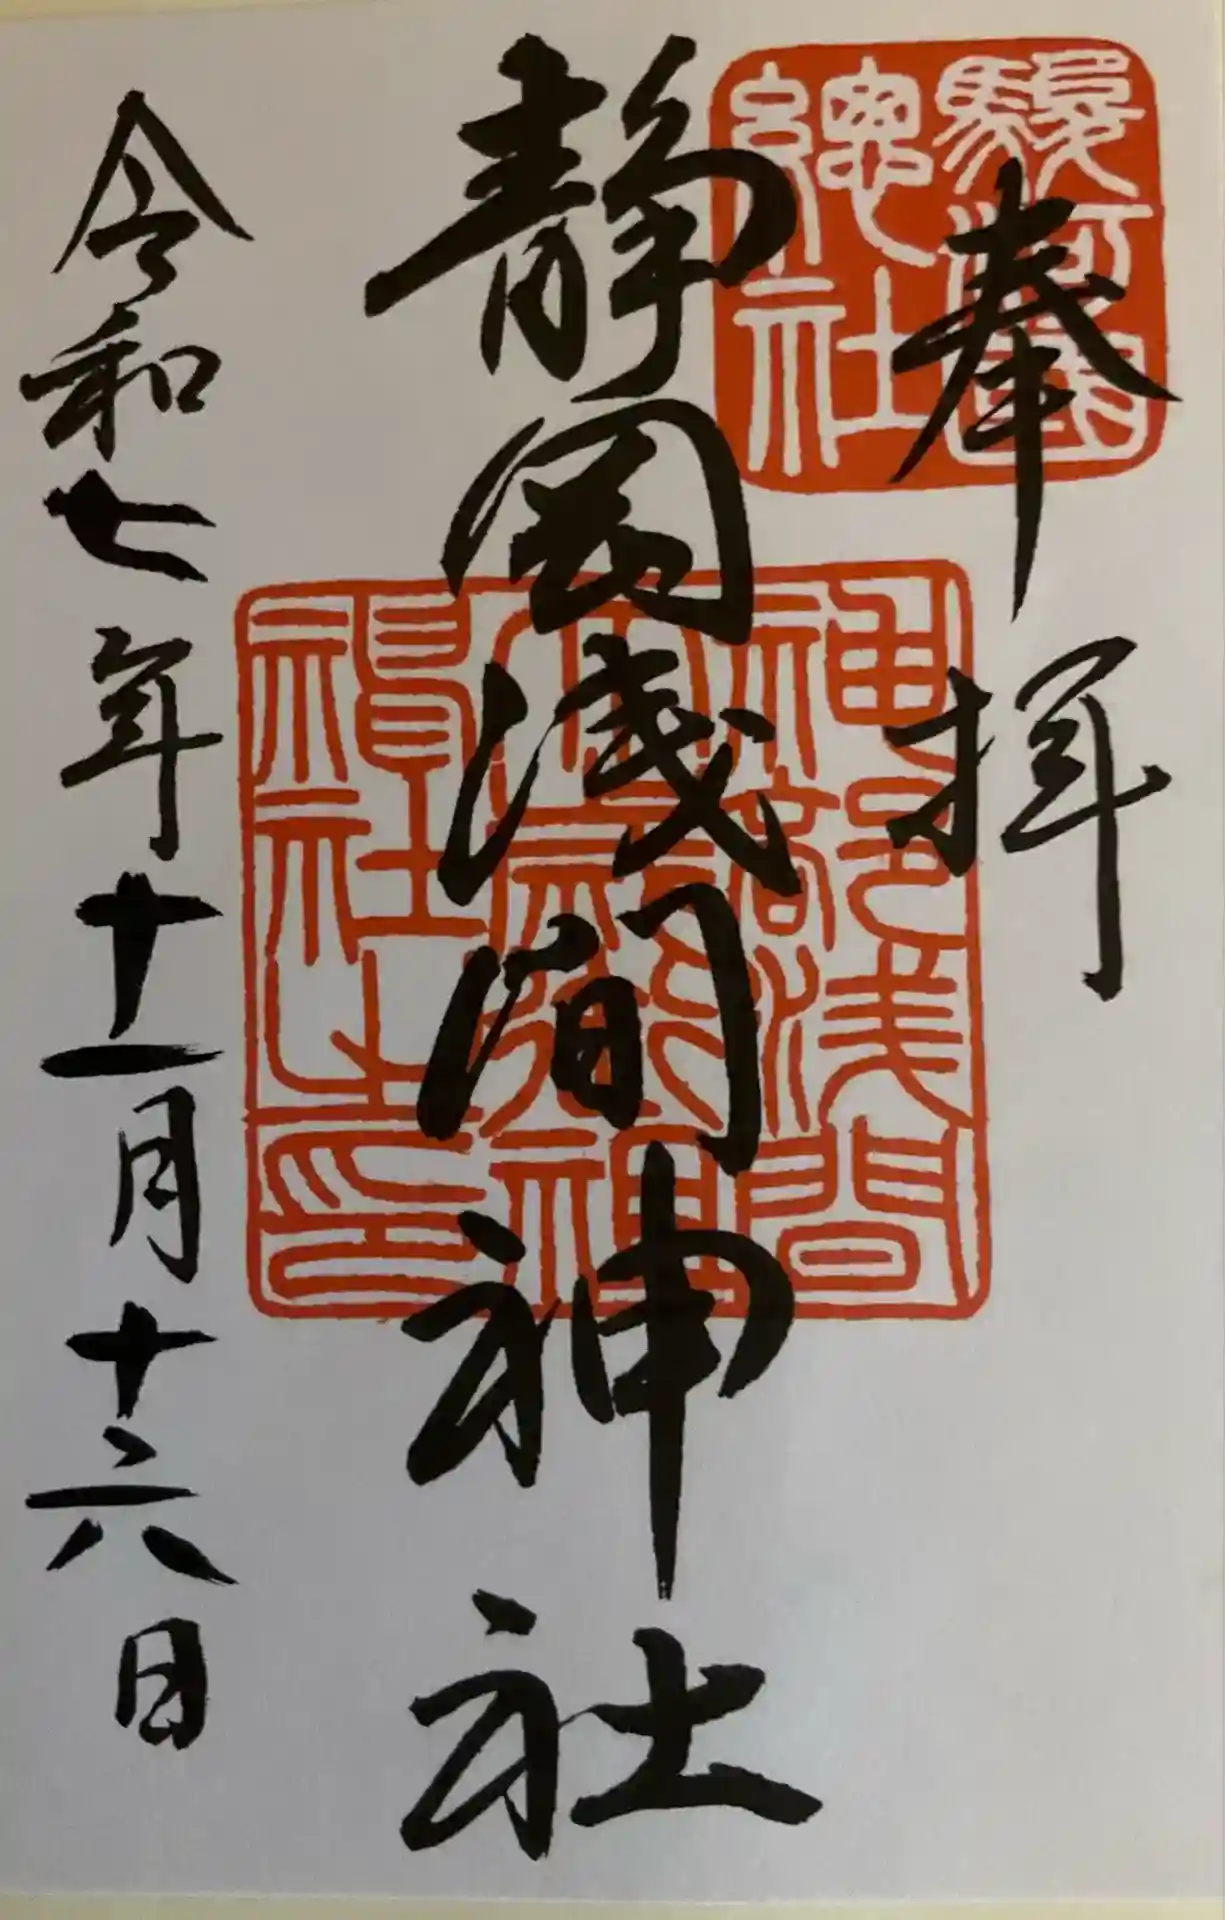 奉拝
駿河國
總社
静岡浅間神社
神部浅間
大歳御祖神
社之印
令和七年十一月十六日